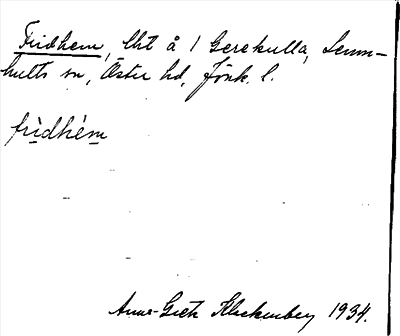 Fridhem, lht å 1 Gerekulla, Lemn-
hults sn, Östra hd, Jönk. l.
frìdhèm
Anna-Greta Klackenberg 1934.